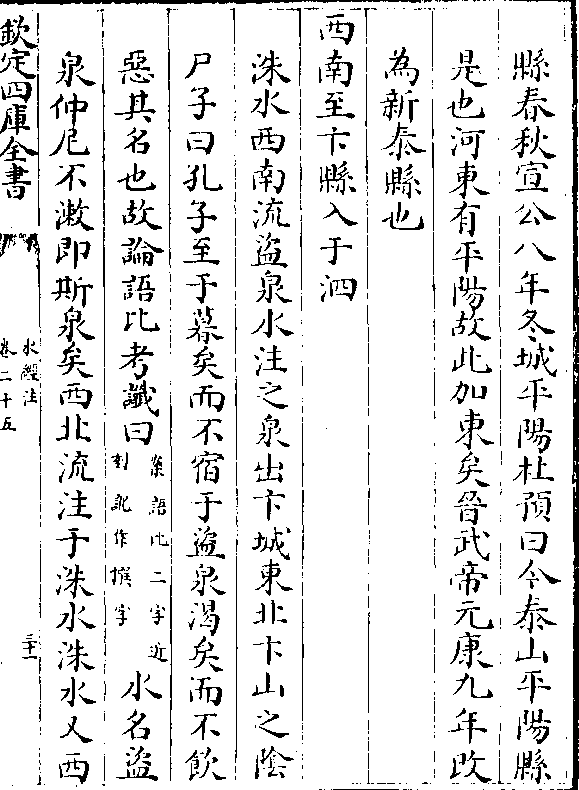 縣春秋宣公八年冬城平陽杜預曰今泰山平陽縣
是也河東有平陽故此加東矣晉武帝元康九年改
為新泰縣也
西南至卞縣入于泗
洙水西南流盜泉水注之泉出卞城東北卞山之陰
尸子曰孔子至于暮矣而不宿于盜泉渴矣而不飲
惡其名也故論語比考讖曰案語比二字近刻訛作撰字水名盜
泉仲尼不漱即斯泉矣西北流注于洙水洙水又西
欽定四庫全書
水經注
卷二十五
三十一